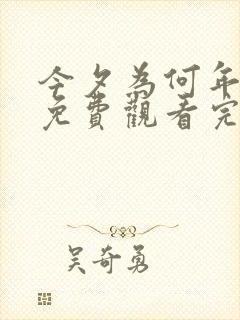 今夕為何年
免費觀看完
吴奇勇